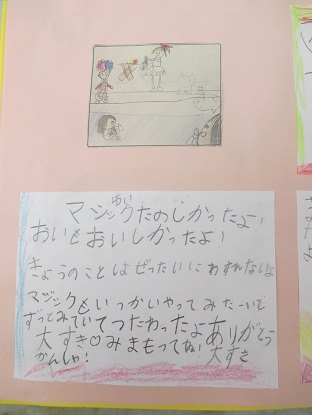 マジックたのしかったよ!
おいもおいしかったよ!
きょうのことはぜったいにわすれないよ
マジックもいっかいやってみたーいも
ずっとみていてつたわったよありがとう
大すき♡みまもってね!大すき
かんしゃ!